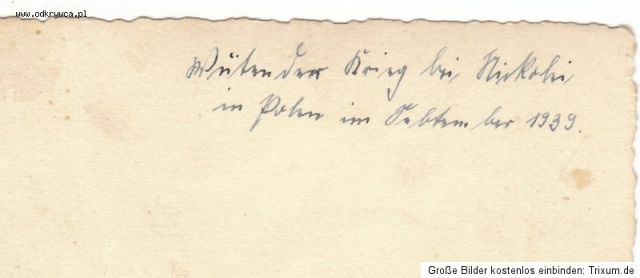 www.odkrywca.pl
Wütender Krieg bei Nickolei
in Polen im Sebtember 1939.
Große Bilder kostenlos einbinden: Trixum.de